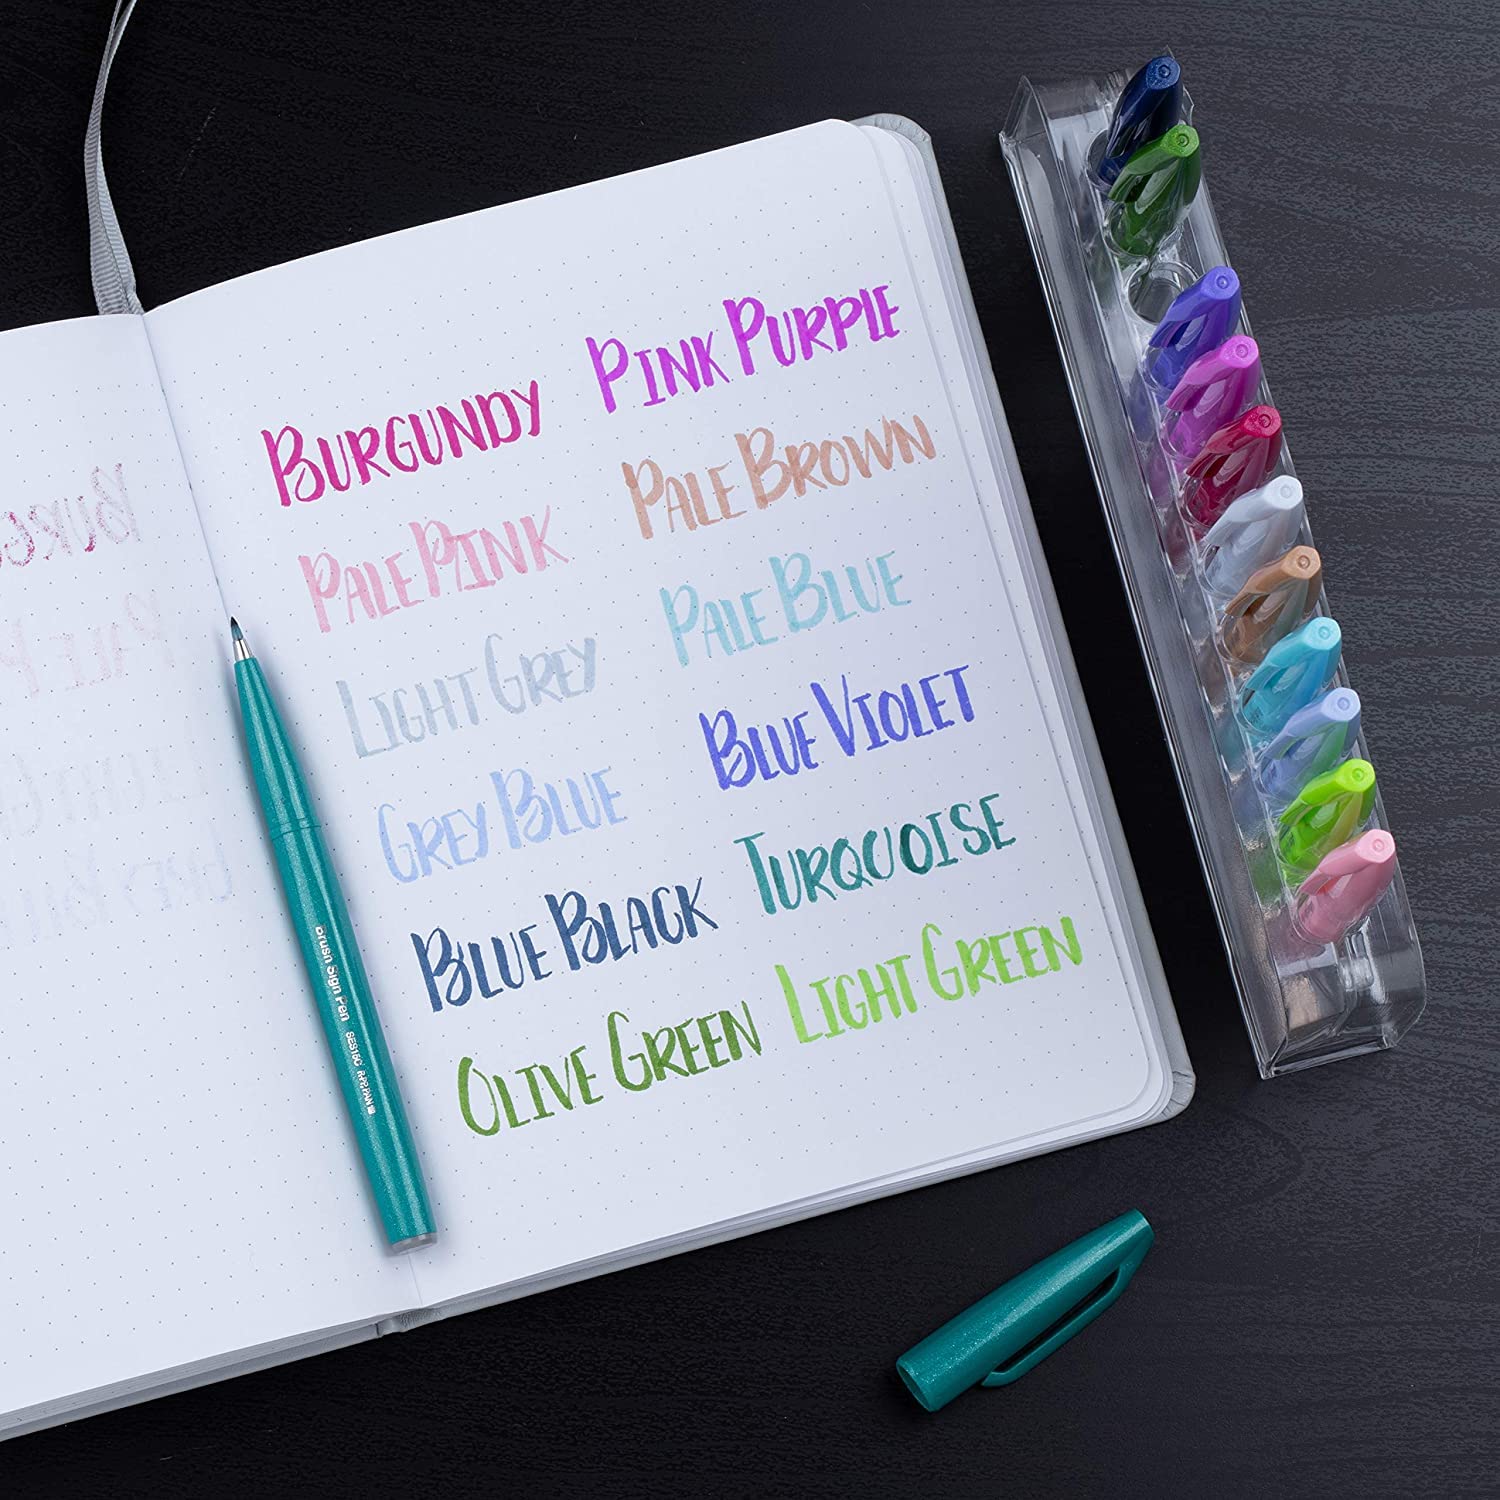 BURGUNDY
PINK PURPLE
PALE PINK
PALE BROWN
LIGHT GREY
PALE BLUE
GREY BLUE
BLUE VIOLET
BLUE BLACK
TURQUOISE
OLIVE GREEN
LIGHT GREEN
Brush Sign Pen SES15C JAPAN